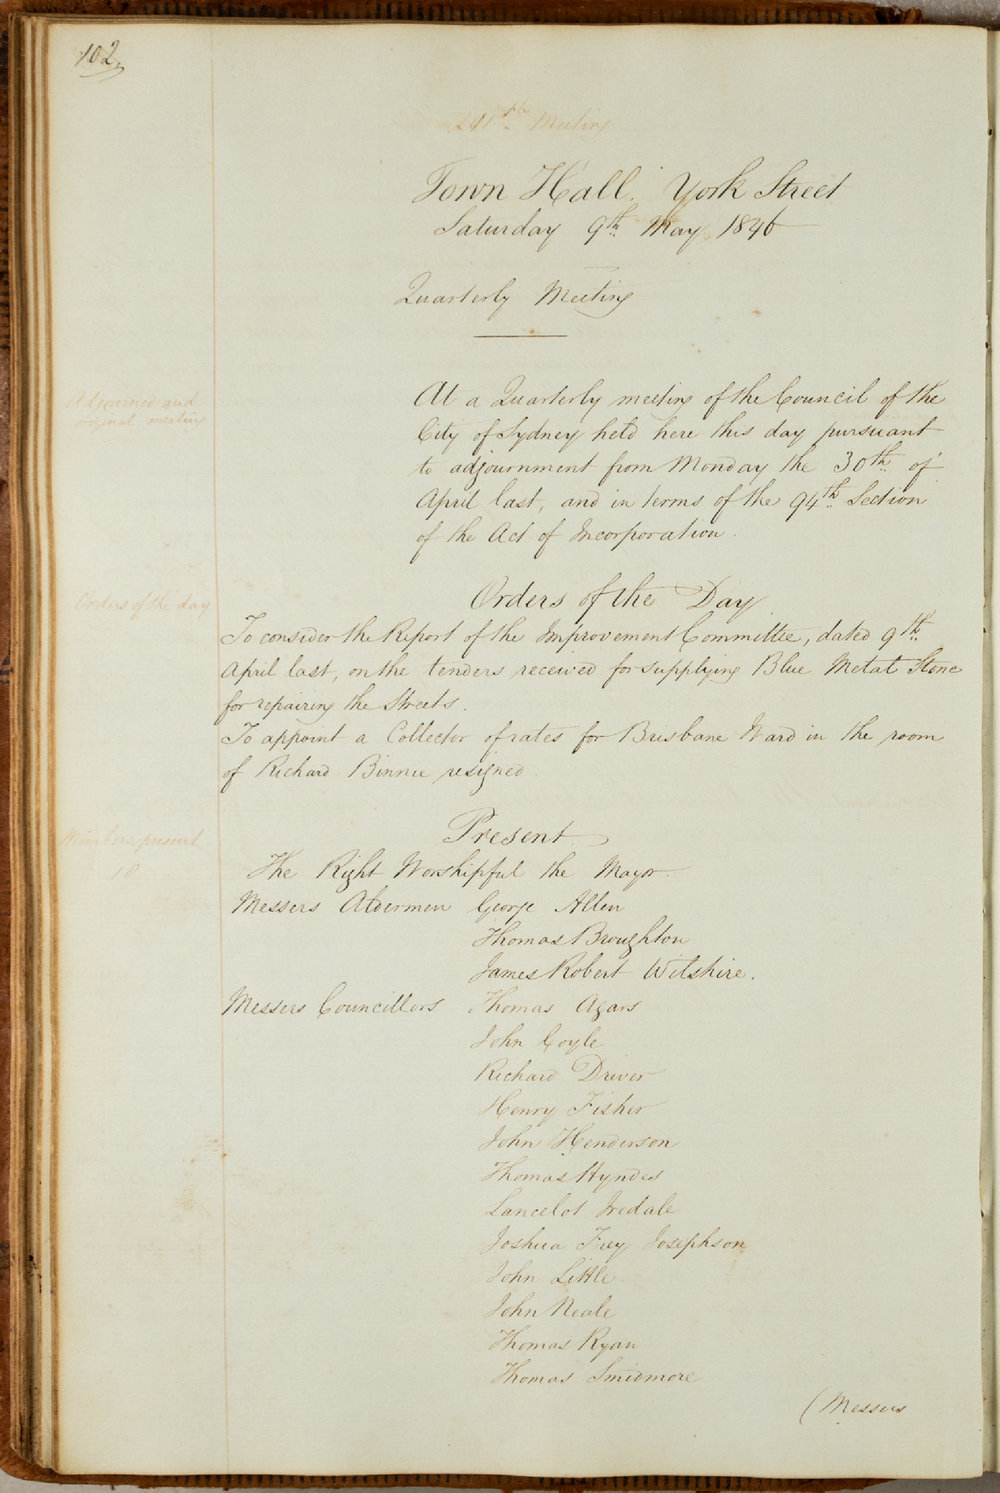 102.
241th Meeting
Town Hall. York Street
Saturday 9th May 1846
Quarterly Meeting
Adjourned and
original meeting
At a Quarterly meeting of the Council of the
City of Sydney held here this day pursuant
to adjournment from Monday the 30th of
April last, and in terms of the 94th Section
of the Act of Incorporation.
Orders of the day
Orders of the Day
To consider the Report of the Improvement Committee, dated 9th
April last, on the tenders received for supplying Blue Metal Stone
for repairing the Streets.
To appoint a Collector of rates for Brisbane Ward in the room
of Richard Binnie resigned.
Members present
18
Present
The Right Worshipful the Mayor.
Messers Aldermen George Allen
Thomas Broughton
James Robert Wilshire.
Messers Councillors Thomas Agars
John Coyle
Richard Driver
Henry Fisher
John Henderson
Thomas Hyndes
Lancelot Iredale
Joshua Frey Josephson
John Little
John Neale
Thomas Ryan
Thomas Smidmore
(Messers